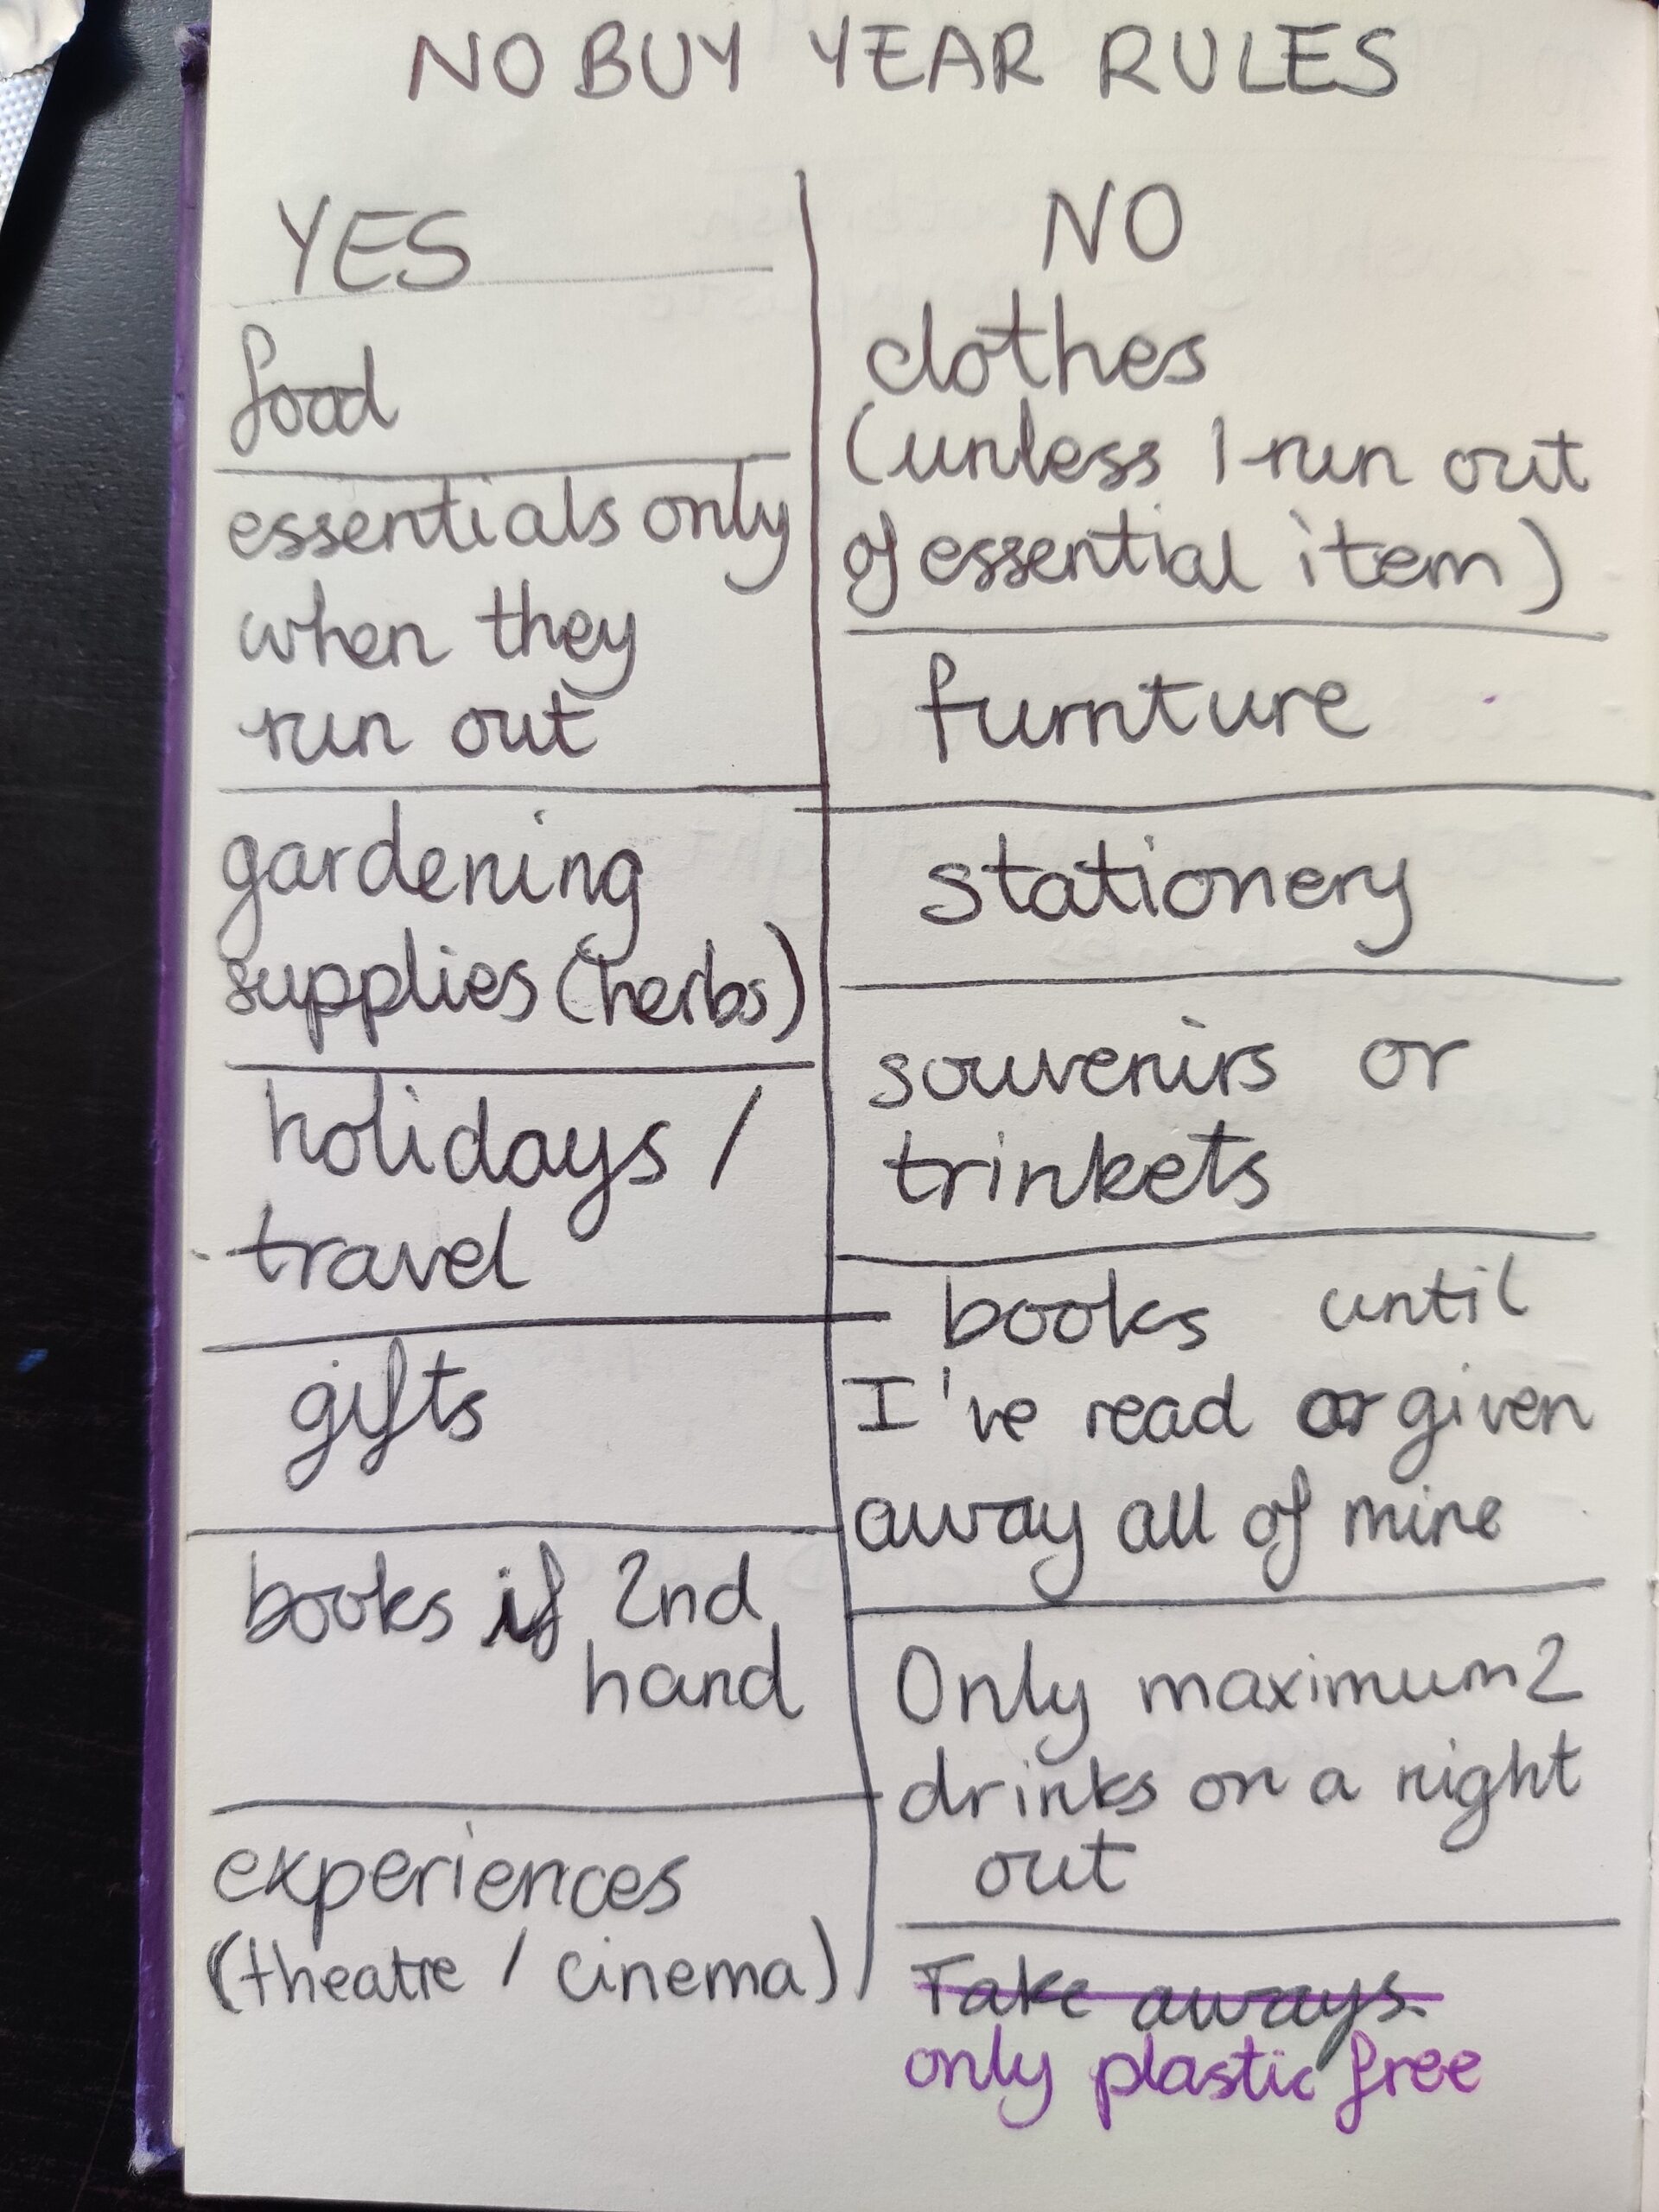 NO BUY YEAR RULES
YES
food
essentials only
when they
run out
gardening
supplies (herbs)
holidays /
travel
gifts
books if 2nd
hand
experiences
(theatre / cinema)
NO
clothes
(unless I run out
of essential item)
furnture
stationery
souvenirs or
trinkets
books until
I've read or given
away all of mine
Only maximum 2
drinks on a night
out
Take aways
only plastic free